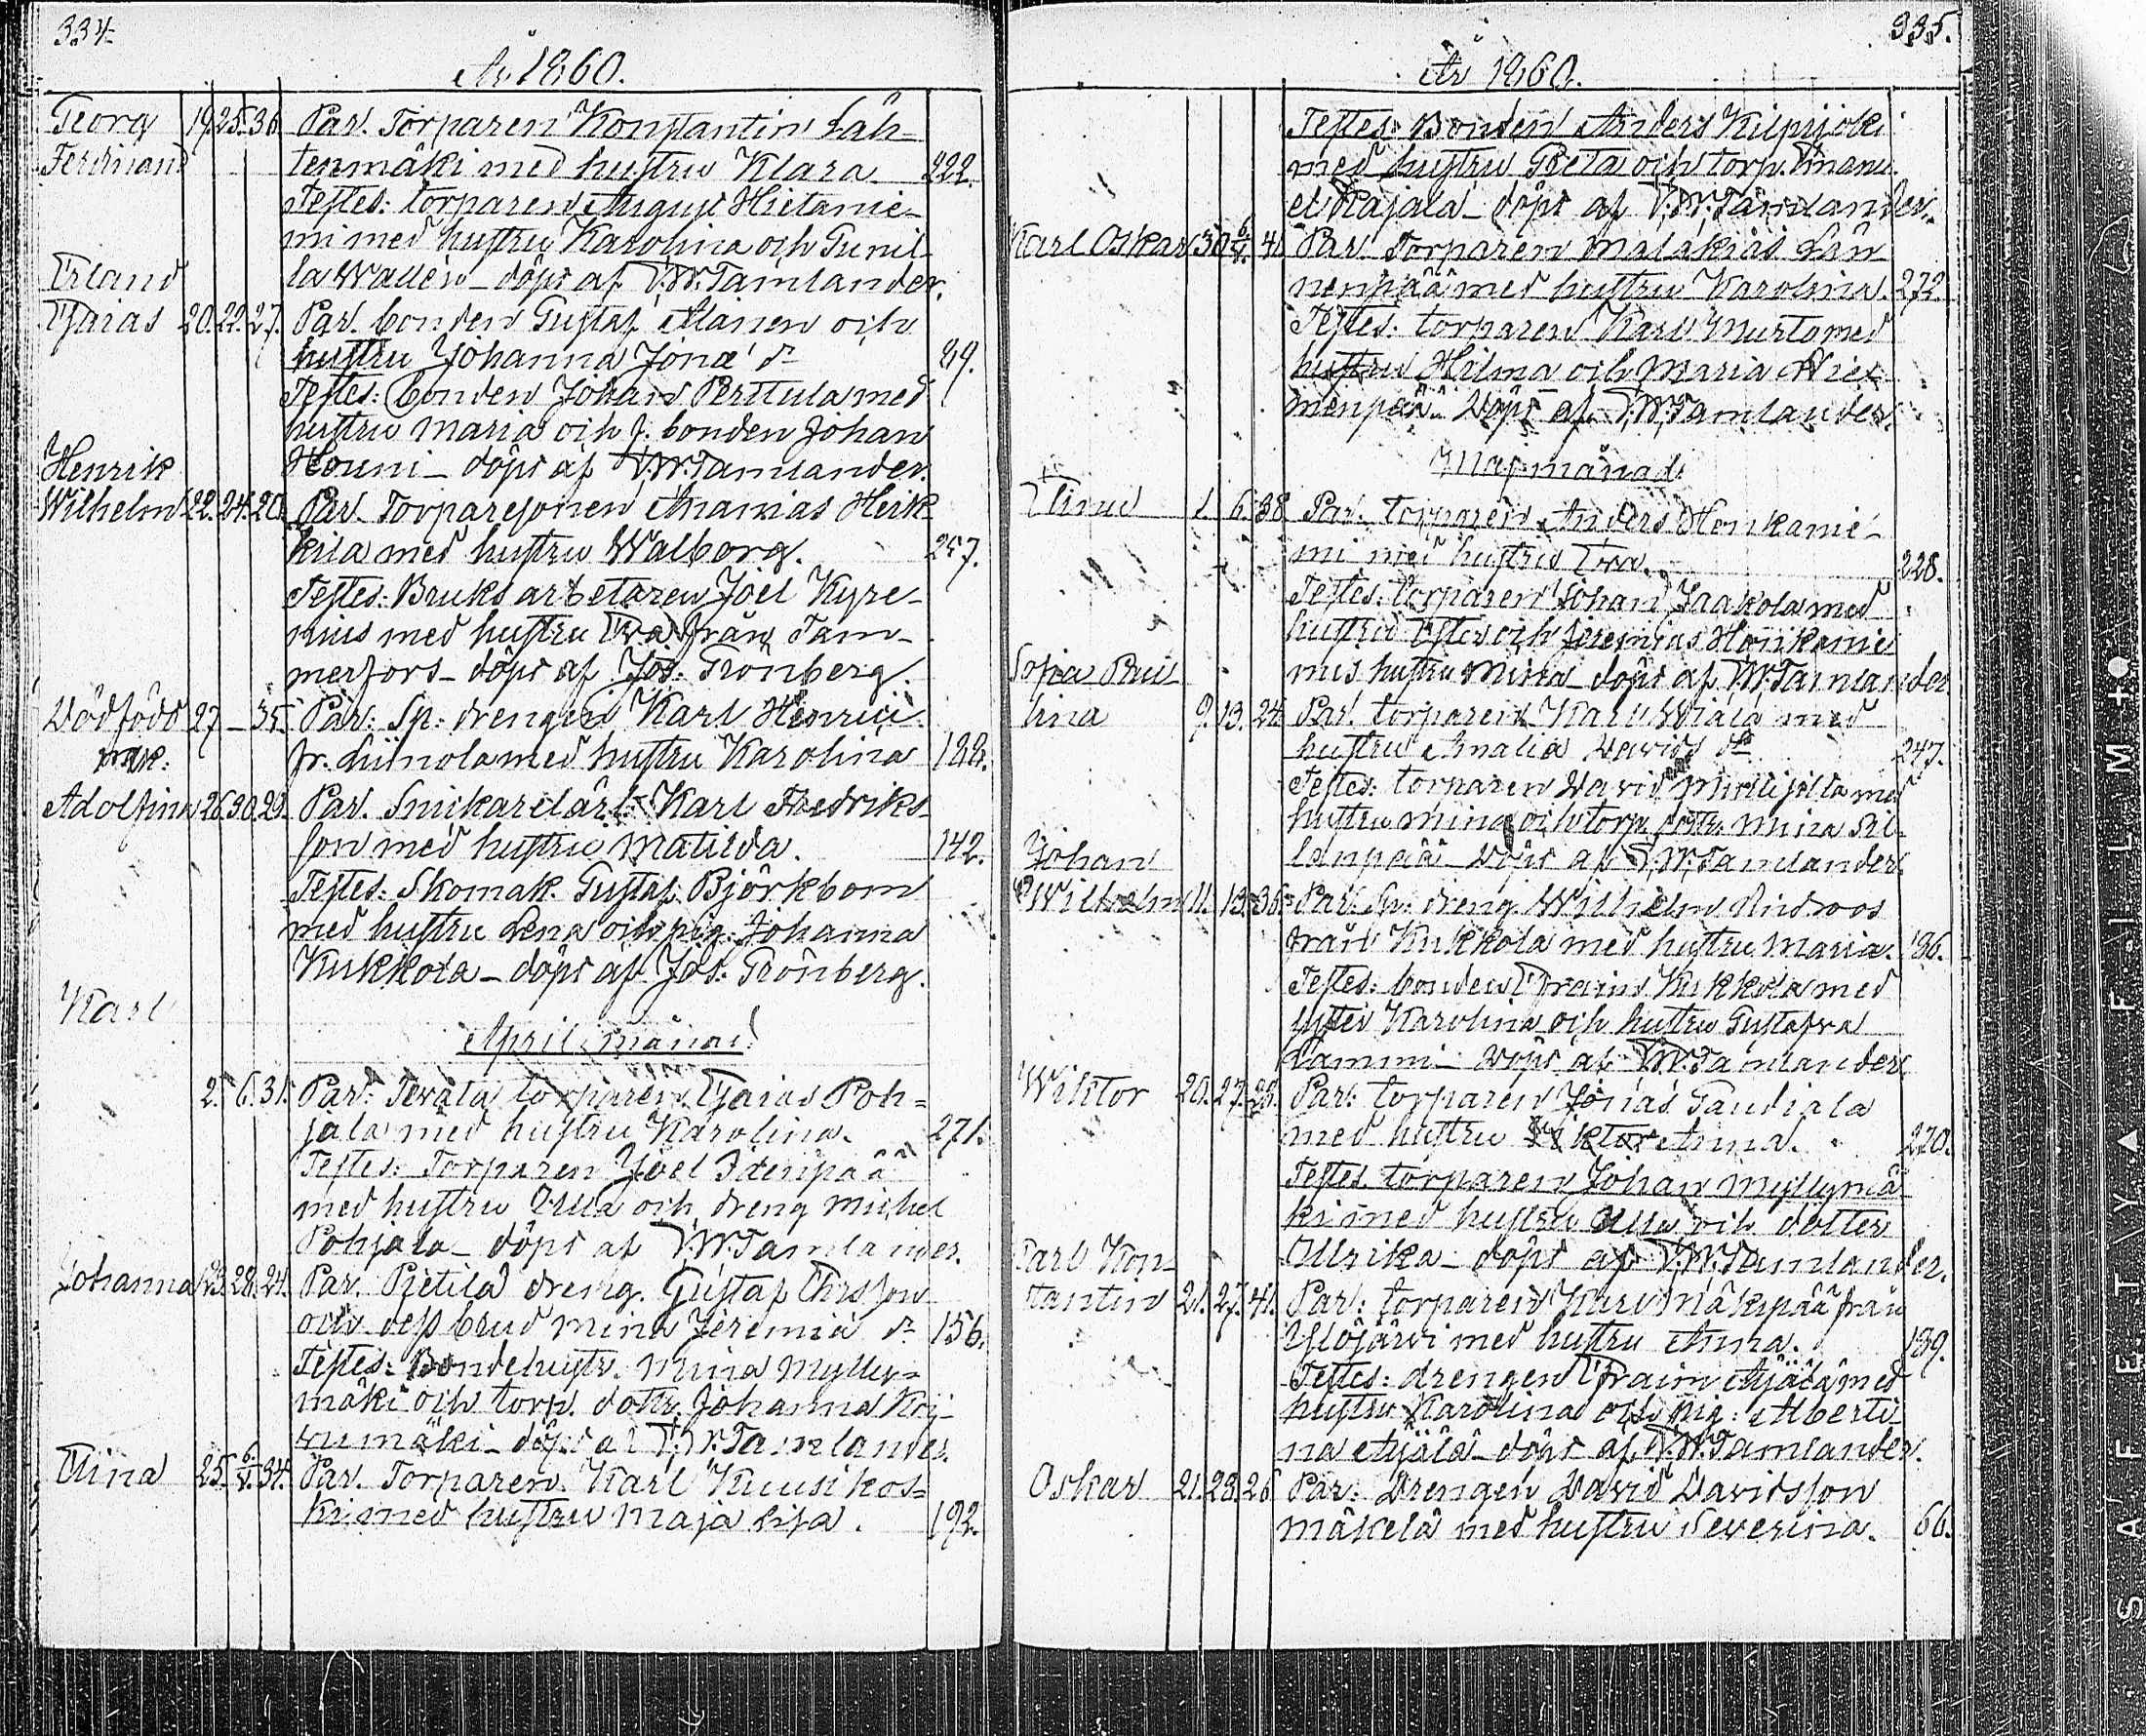 334.
År 1860.
Georg 19. 25. 36. Par. Torparen Konstantin Läh-
Ferdinand tenmäki med hustru Klara. 222.
Testes: torparen August Hietanie-
mi med hustru Karolina och Gunil-
Erland la Wallén – döpt af F.W. Tamlander.
Esaias 20. 22. 27. Par. bonden Gustaf Alanen och
hustru Johanna Jonæ dr 89.
Testes: bonden Johan Perttula med
hustru Maria och f. bonden Johan
Henrik Houni – döpt af F.W. Tamlander.
Wilhelm 22. 24. 20. Par. Torparesonen Ananias Heik-
kilä med hustru Walborg. 257.
Testes: Bruksarbetaren Joel Kyre-
nius med hustru Eva från Tam-
merfors – döpt af Jos: Grönberg.
Dödfödd 27 – 35. Par: Sp: drengen Karl Henrici
fr. Liinola med hustru Karolina 188.
Adolfina 26. 30. 29. Par. Snickarelärl: Karl Fredriks-
son med hustru Matilda. 142.
Testes: Skomak. Gustaf Björkbom
med hustru Lena och pig. Johanna
Kukkola – döpt af Jos: Grönberg.
Karl
April månad
2. 6. 31. Par: Tevala torparen Esaias Poh=
jala med hustru Karolina. 271.
Testes: Torparen Joel Idenpää
med hustru Ulla och dreng Michel
Pohjala – döpt af F.W. Tamlander.
Johanna 23. 28. 24. Par. Pietilä dreng. Gustaf Ersson
och dess brud Mina Jeremiæ dr 156.
Testes: Bondehustr. Mina Mylly=
mäki och torp. dotr. Johanna
mäki – döpt af F.W. Tamlander.
Elina 25. 6/V. 34. Par. Torparen Karl Kuusikos=
ki med hustru Maja Lisa. 192.
335.
År 1860.
Testes: Bonden Anders Kilpijoki
med hustru Greta och torp. Emanu-
el Rajala – döpt af F.W. Tamlander.
Karl Oskar 30 6/V. 41. Par. Torparen Malakias Län-
nenpää med hustru Karolina. 272.
Testes: torparen Karl Murto med
hustru Hilma och Maria
menpää – döpt af F.W. Tamlander.
Maj månad.
1. 6. 38 Par: torparen Anders Honkanie-
mi med hustru Eva. 228.
Testes: torparen Johan Jaakola med
hustru Ester och Jeremias Honkanie
Sofia Pau- mis hustru Mina – döpt af F.W. Tamlander.
lina 9. 13. 24. Par. torparen Karl Wiala med
hustru Amalia Davids dr 247.
Testes: torparen David med
hustru Mina och torp. dottr. Mina Sil-
Johan lanpää – döpt af F.W. Tamlander.
Wilhelm 11. 13. 36. Par. Sp: dreng Wilhelm Androos
från Kukkola med hustru Maria. 186.
Testes: bonden Efraim Kukkola med
syster Karolina och hustru Gustafva
Lammi – döpt af F.W. Tamlander
Wiktor 20. 27. 28. Par: torparen Jonas Gaudiala
med hustru Anna. 220.
Testes torparen Johan Myllymä-
ki med hustru Ulla och dotter
Karl Kon- Ulrika – döpt af F.W. Tamlander.
stantin 21. 27. 41. Par: torparen Karl Mäkipää från
Ylöjärvi med hustru Anna. 139.
Testes: drengen Efraim Äijälä med
hustru Karolina och pig: Alberti-
na Äijälä – döpt af F.W. Tamlander.
Oskar 21. 28. 26 Par: Drengen David Davidsson
Mäkelä med hustru Severina. 66.
SAFETY FILM